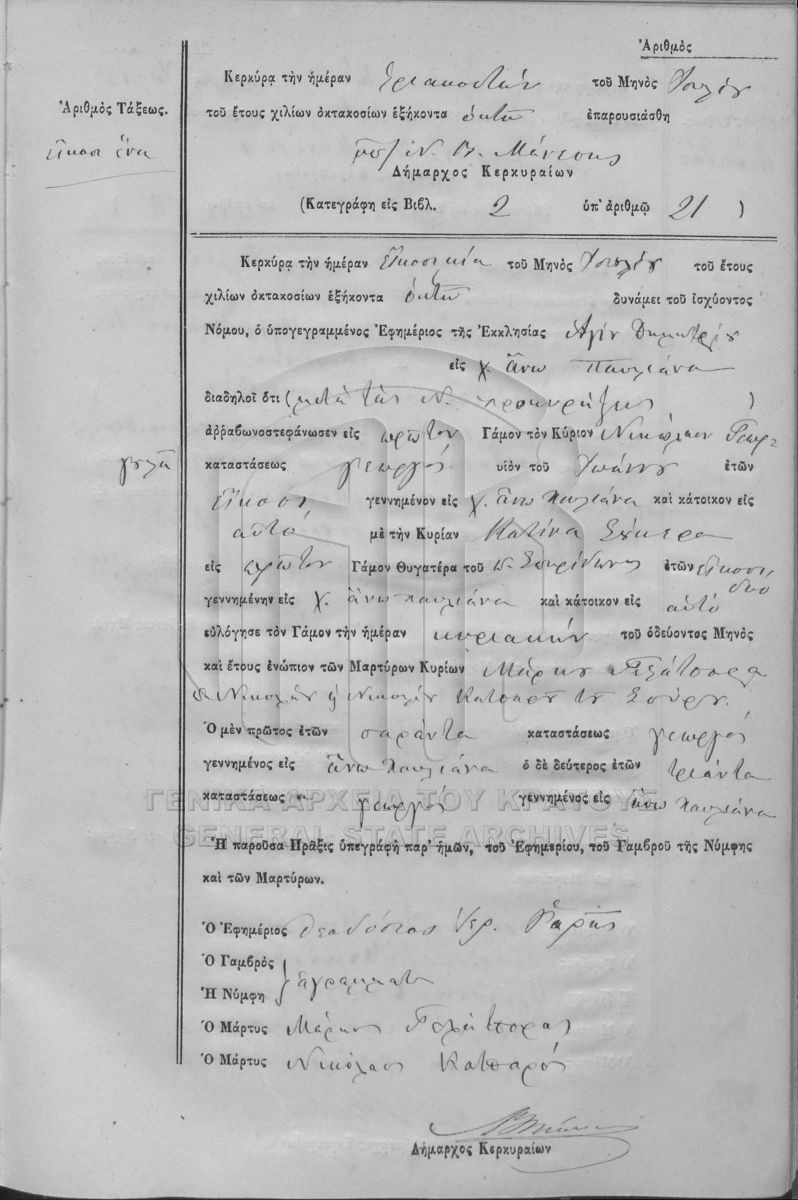 Ἀριθμὸς
Κερκύρᾳ τὴν ἡμέραν τριακοστὴν τοῦ Μηνὸς Ἰουλίου
Ἀριθμὸς Τάξεως.
τοῦ ἔτους χιλίων ὀκτακοσίων ἑξήκοντα ὀκτὼ ἐπαρουσιάσθη
εἴκοσι ἕνα
Ν. Μάνεσης
Δήμαρχος Κερκυραίων
(Κατεγράφη εἰς Βιβλ. 2 ὑπ' ἀριθμῷ 21 )
Κερκύρᾳ τὴν ἡμέραν εἴκοσι μία τοῦ Μηνὸς Ἰουλίου τοῦ ἔτους
χιλίων ὀκτακοσίων ἑξήκοντα ὀκτὼ δυνάμει τοῦ ἰσχύοντος
Νόμου, ὁ ὑπογεγραμμένος Ἐφημέριος τῆς Ἐκκλησίας Ἁγίου Δημητρίου
εἰς χ. ἄνω Παυλιάνα
διαδηλοῖ ὅτι (μετὰ τὰς Ν. προκηρύξεις )
ἀῤῥαβωνοστεφάνωσεν εἰς πρῶτον Γάμον τὸν Κύριον Νικόλαον Γεωρ-
γουλᾶ
καταστάσεως γεωργός υἱὸν τοῦ Ἰωάννου ἐτῶν
εἴκοσι γεννημένον εἰς χ. ἄνω Παυλιάνα καὶ κάτοικον εἰς
αὐτό μὲ τὴν Κυρίαν Κατίνα
εἰς πρῶτον Γάμον Θυγατέρα τοῦ π. Σπυρίδωνος ἐτῶν εἴκοσι
δυο
γεννημένην εἰς χ. ἄνω Παυλιάνα καὶ κάτοικον εἰς αὐτό
εὐλόγησε τὸν Γάμον τὴν ἡμέραν κυριακὴν τοῦ ὁδεύοντος Μηνὸς
καὶ ἔτους ἐνώπιον τῶν Μαρτύρων Κυρίων Μάρκου
Νικολάου Κατσαροῦ τοῦ Σπύρου
Ὁ μὲν πρῶτος ἐτῶν σαράντα καταστάσεως γεωργός
γεννημένος εἰς ἄνω Παυλιάνα ὁ δὲ δεύτερος ἐτῶν τριάντα
καταστάσεως γεωργός γεννημένος εἰς ἄνω Παυλιάνα
ΓΕΝΙΚΑ ΑΡΧΕΙΑ ΤΟΥ ΚΡΑΤΟΥΣ
GENERAL STATE ARCHIVES
Ἡ παροῦσα Πρᾶξις ὑπεγράφη παρ' ἡμῶν, τοῦ Ἐφημερίου, τοῦ Γαμβροῦ τῆς Νύμφης
καὶ τῶν Μαρτύρων.
Ὁ Ἐφημέριος Θεοδόσιος Ἱερ.
Ὁ Γαμβρὸς
ἀγράμματοι
Ἡ Νύμφη
Ὁ Μάρτυς Μάρκος
Ὁ Μάρτυς Νικόλαος Κατσαρός
Δήμαρχος Κερκυραίων